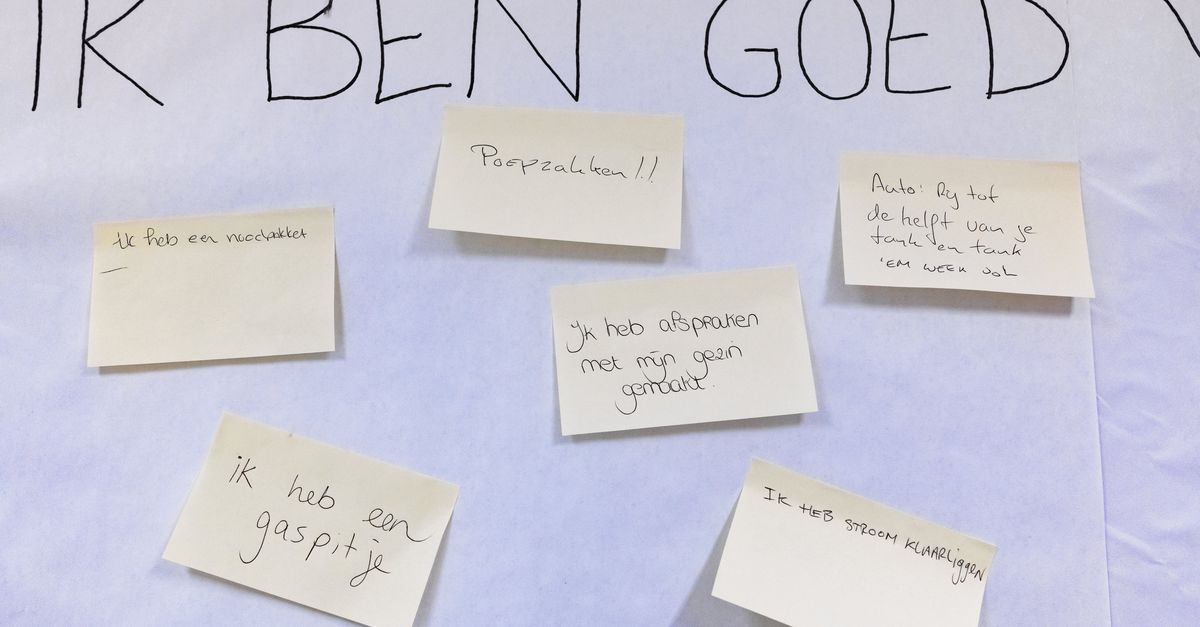 IK BEN GOED
Poepzakken!!
Auto: Rij tot
de helft van je
tank en tank
'EM WEER VOL
Ik heb een noodpakket
—
Ik heb afspraken
met mijn gezin
gemaakt.
ik heb een
gaspitje
IK HEB STROOM KLAARliggen